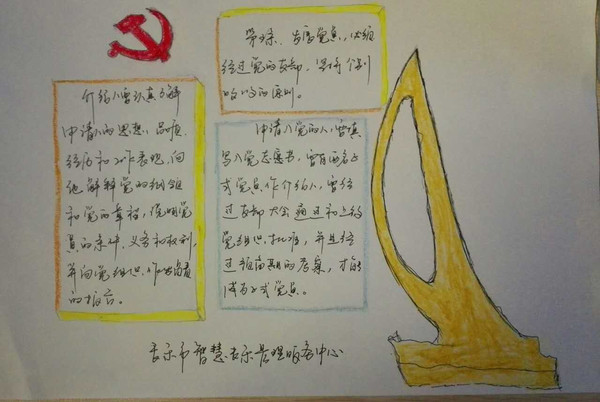 第五条、发展党员,必须
经过党的支部,坚持个别
吸收的原则。
介绍人要认真了解
申请人的思想、品质、
经历和工作表现,向
他解释党的纲领
和党的章程,说明党
员的条件、义务和权利,
并向党组织作出负责
的报告。
申请入党的人,要填
写入党志愿书,要有两名正
式党员作介绍人,要经
过支部大会通过和上级
党组织批准,并且经
过预备期的考察,才能
成为正式党员。
长乐市智慧长乐管理服务中心